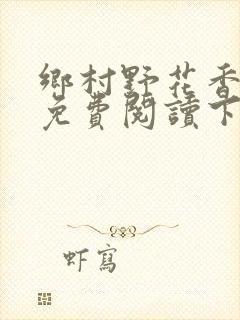 鄉村野花香
免費閱讀下
虾寫